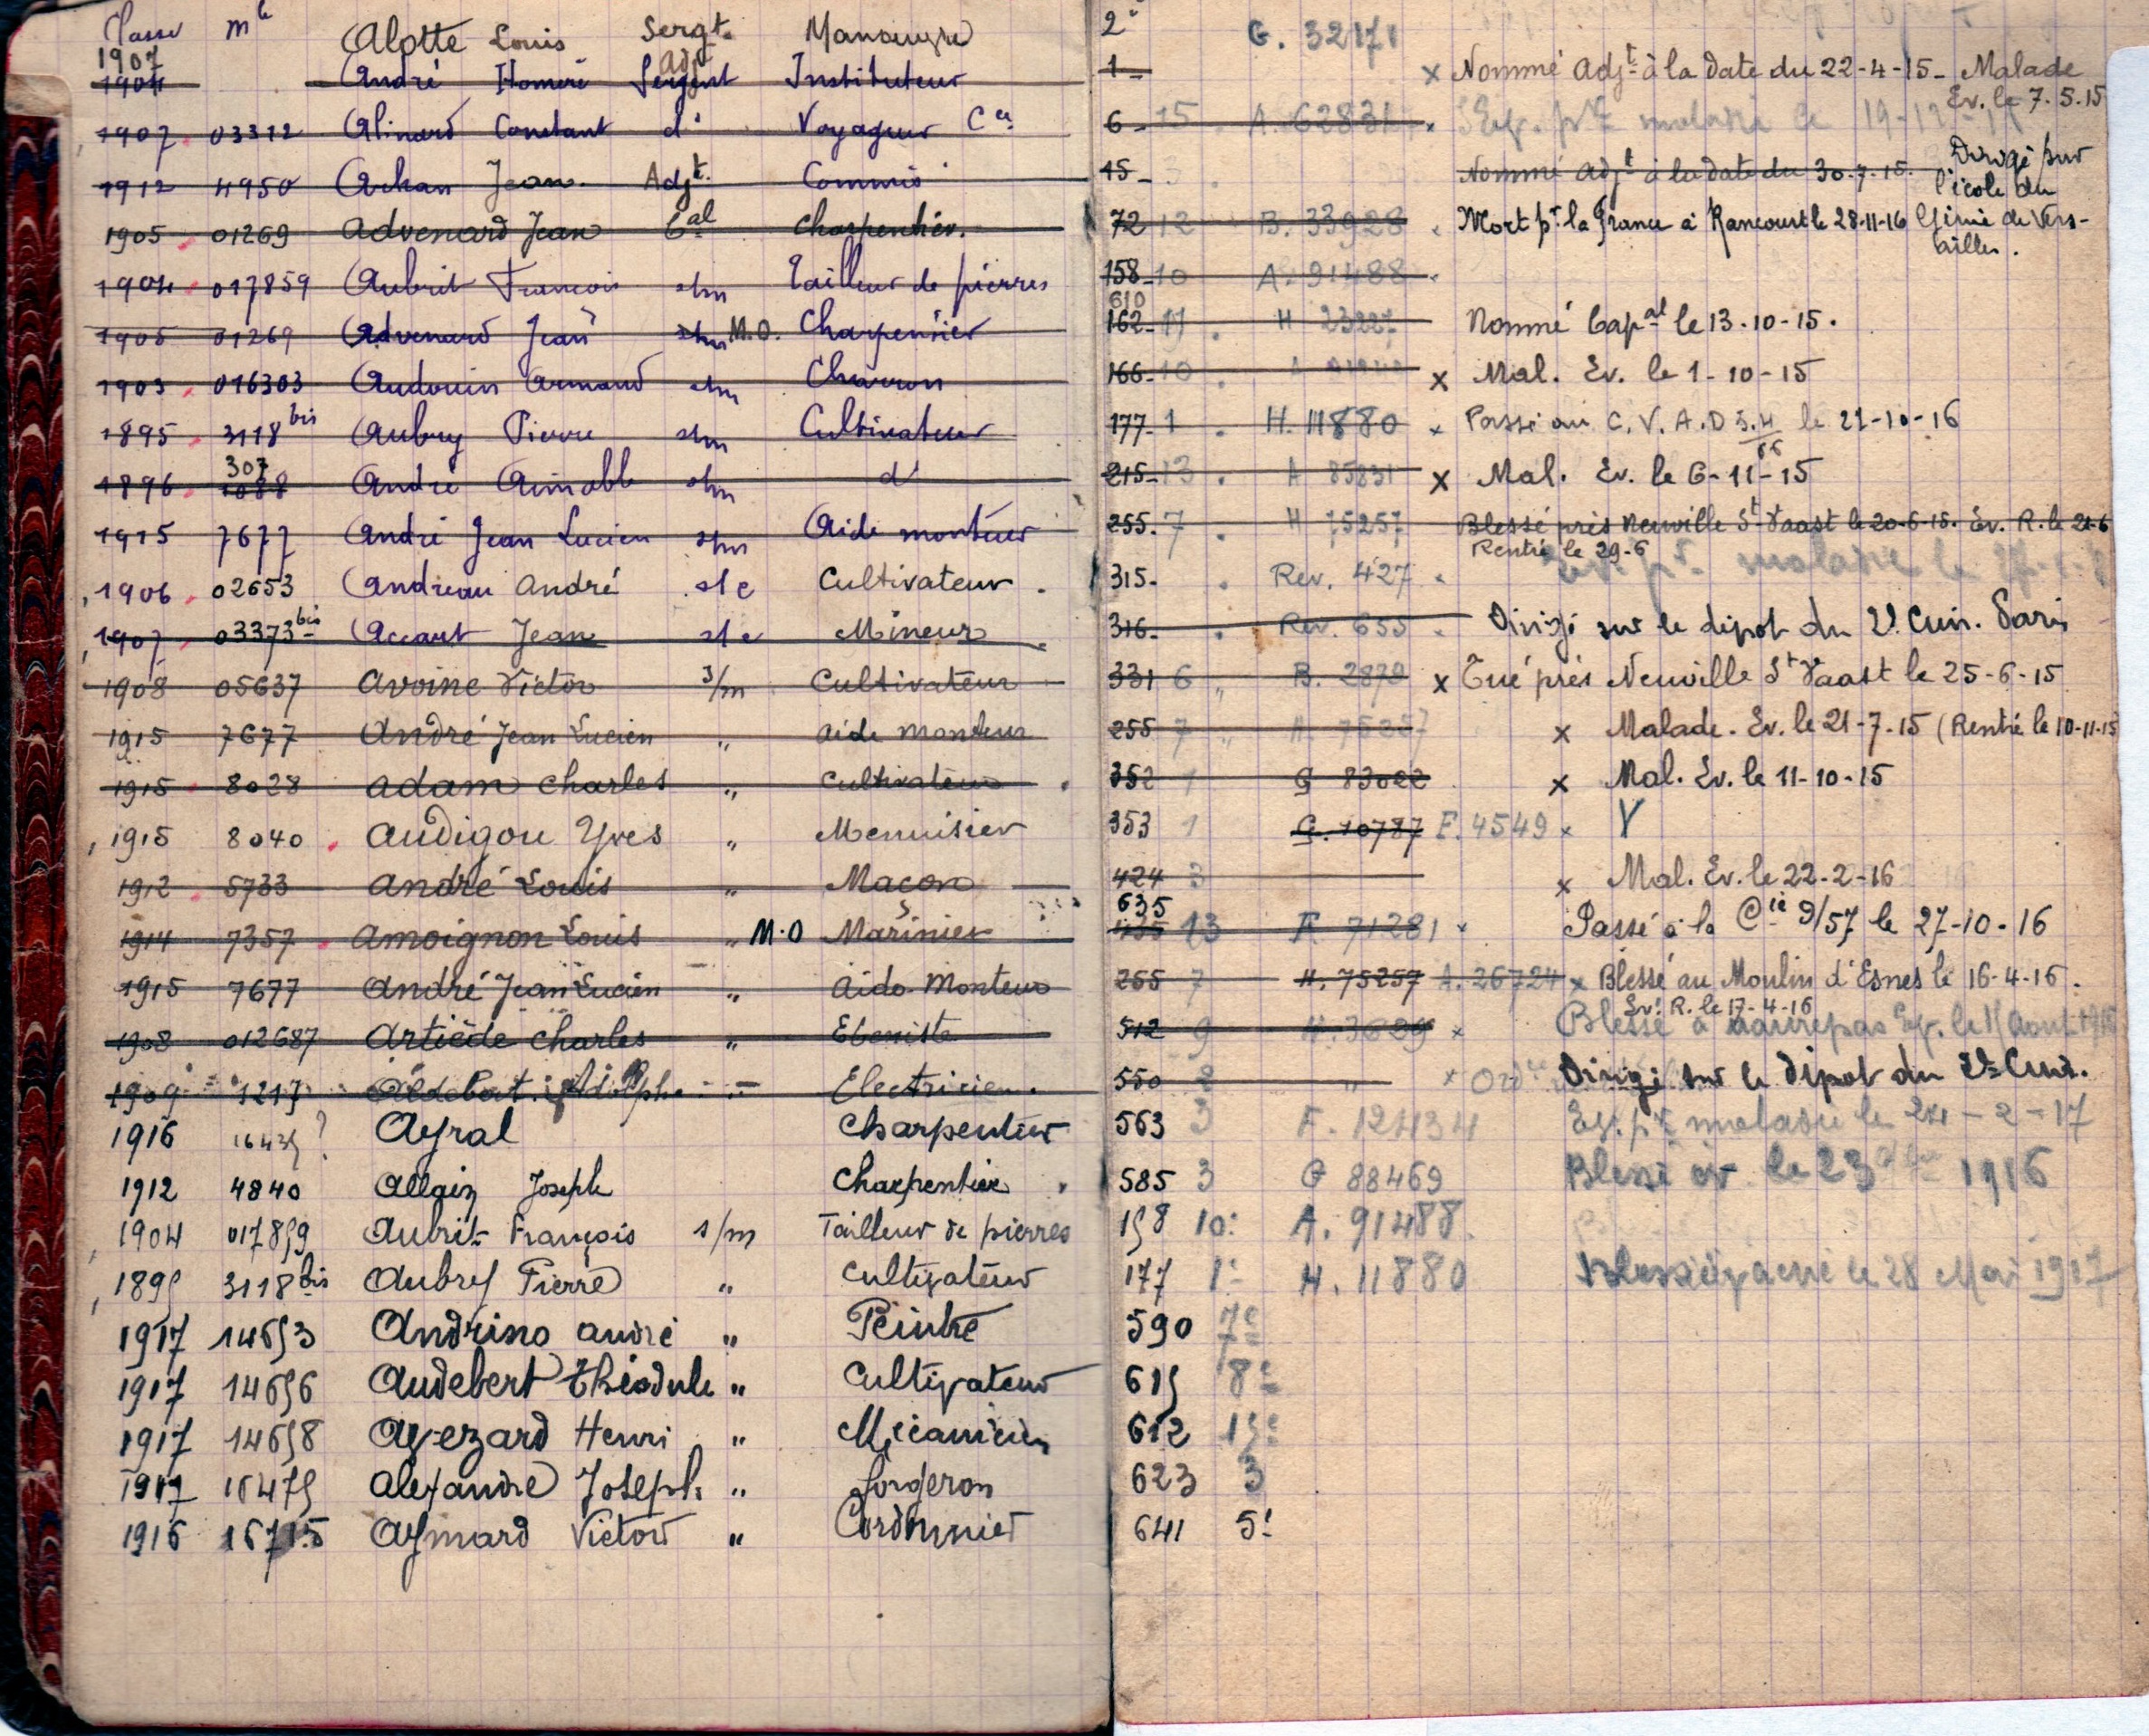 Classe Mle
1907 Alotte Louis Sergt. Manœuvre 2e G. 32171
1904 André Homère Sergent Adjt Instituteur 1 x Nommé Adjt à la date du 22-4-15 - Malade
Ev. le 7.5.15
1907 03312 Alinard Constant do Voyageur Ce 6 15 A. 62831 malade le 19-12
1912 4950 Achan Jean Adjt. Commis 15 3 Nommé Adjt à la date du 30.7.15. Dirigé sur
l'école du
1905 01269 Advenard Jean Cal Charpentier. 72 12 B. 33928 Mort pr la France à Rancourt le 28-11-16 Génie de Vers-
ailles.
1904 017859 Aubrit François s/m Tailleur de pierres 158 10 A. 91488
610
1905 01269 Advenard Jean s/m M.O. Charpentier 162 11 H 23227 Nommé Capal le 13-10-15.
1903 016303 Audouin Armand s/m Charron 166 10 x Mal. Ev. le 1-10-15
1895 3118 bis Aubry Pierre s/m Cultivateur 177 1 H. 11880 x Passé au C.V.A.D 5.4 le 21-10-16
307
1896 1088 André Aimable s/m do 215 13 A 85831 x Mal. Ev. le 6-11-15
1915 7677 André Jean Lucien s/m Aide monteur 255. 7 H 75257 Blessé près Neuville St Vaast le 20-6-15. Ev. R. le 21-6
Rentré le 29-6
1906 02653 Andreau André s/c Cultivateur. 315 Rev. 427 malade le
1907 03373 bis Accart Jean s/c Mineur 316 Rev. 655 Dirigé sur le dépôt du 2e Cuir. Paris
1908 05637 Avoine Victor s/m Cultivateur 331 6 B. 2879 x Tué près Neuville St Vaast le 25-6-15
1915 7677 André Jean Lucien " aide monteur 255 7 H. 75257 x Malade. Ev. le 21-7-15 (Rentré le 10-11-15
1915 8028 Adam Charles " Cultivateur 352 1 G 83022 x Mal. Ev. le 11-10-15
1915 8040 Audigou Yves " Menuisier 353 1 G. 10787 F. 4549 x Y
1912 5733 André Louis " Maçon 424 3 x Mal. Ev. le 22-2-16
635
1914 7357 Amoignon Louis " M.O Marinier 435 13 F. 71281 x Passé à la Cie 9/57 le 27-10-16
1915 7677 André Jean Lucien " Aide-Monteur 255 7 H. 75257 A. 26724 x Blessé au Moulin d'Esnes le 16-4-16.
Ev. R. le 17-4-16
1908 012687 Artiède Charles " Ebeniste 512 9 x Blessé à Maurepas Ev. le
1909 1217 Aldebert Adolphe Electricien. 550 2 " x Dirigé sur le dépôt du 2e Cuir.
1916 1643 ? Ayral Charpentier 563 3 F. 12434 Ev. pr malade le 24-2-17
1912 4840 Allain Joseph Charpentier 585 3 G 88469 Blessé év le 23 1916
1904 017859 Aubrit François s/m Tailleur de pierres 158 10e A. 91488
1895 3118 bis Aubry Pierre " Cultivateur 177 1e H. 11880 Blessé évacué le 28 Mai 1917
1917 14653 Andrino André " Peintre 590 7e
1917 14656 Audebert Théodule " Cultivateur 615 8e
1917 14658 Avezard Henri " Mécanicien 612 15e
1917 16475 Alexandre Joseph " forgeron 623 3
1916 16715 Aymard Victor " Cordonnier 641 5e